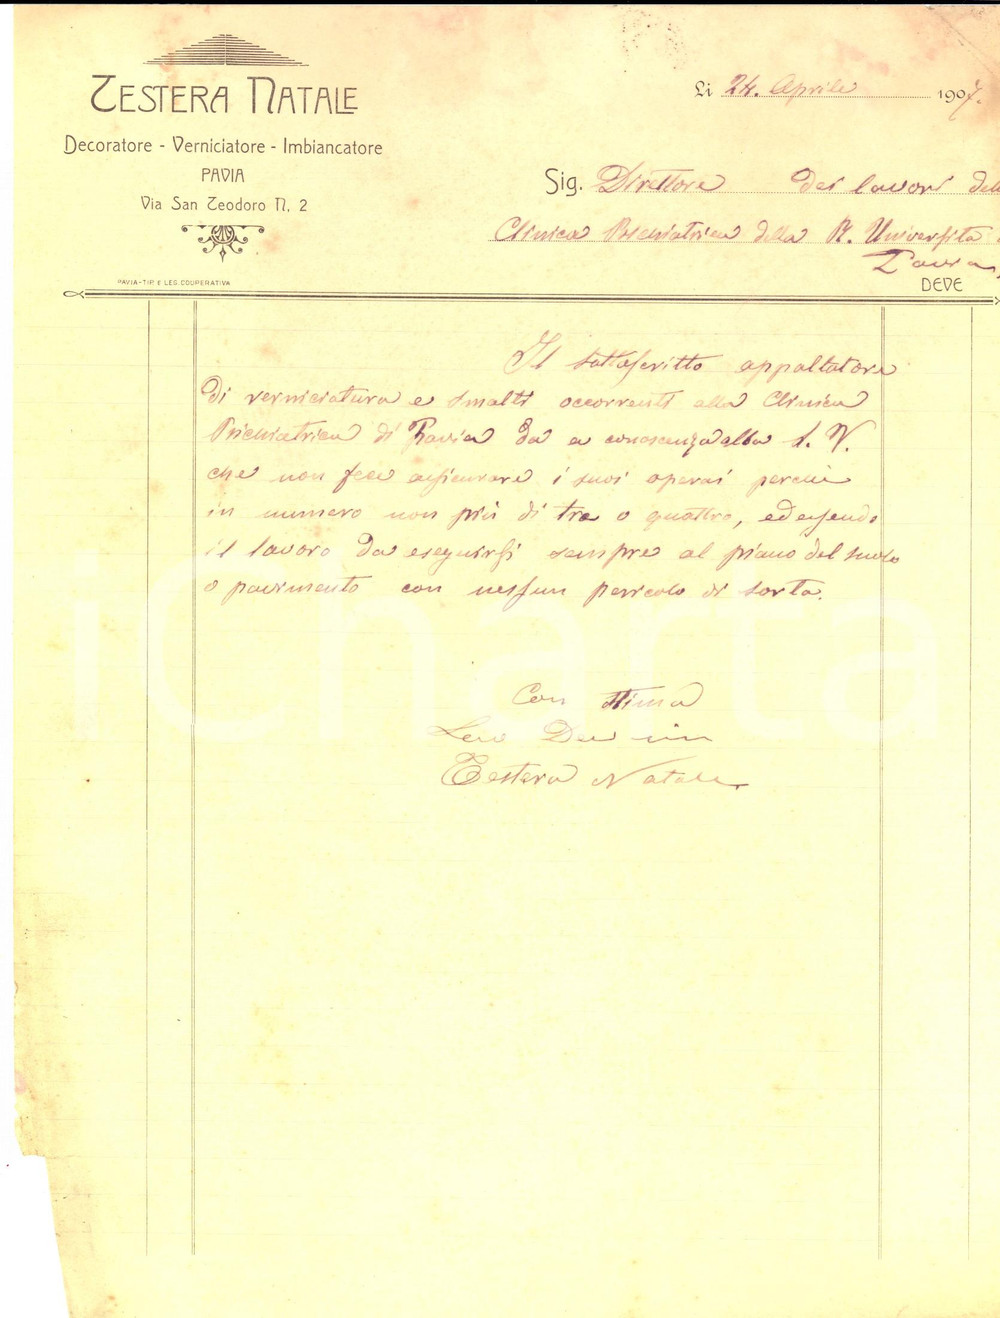 TESTERA NATALE
Decoratore - Verniciatore - Imbiancatore
PAVIA
Via San Teodoro N. 2
PAVIA-TIP. E LEG. COOPERATIVA
Li 24. Aprile 1907.
Sig. Direttore dei lavori della
Clinica Psichiatrica della R. Università
Pavia
DEVE
Il sottoscritto appaltatore
di verniciatura e smalti occorrenti alla Clinica
Psichiatrica di Pavia da a conoscenza alla S. V.
che non fece assicurare i suoi operai perchè
in numero non più di tre o quattro, ed essendo
il lavoro da eseguirsi sempre al piano del suolo
o pavimento con nessun pericolo di sorta.
Con stima
Testera Natale
iCharta